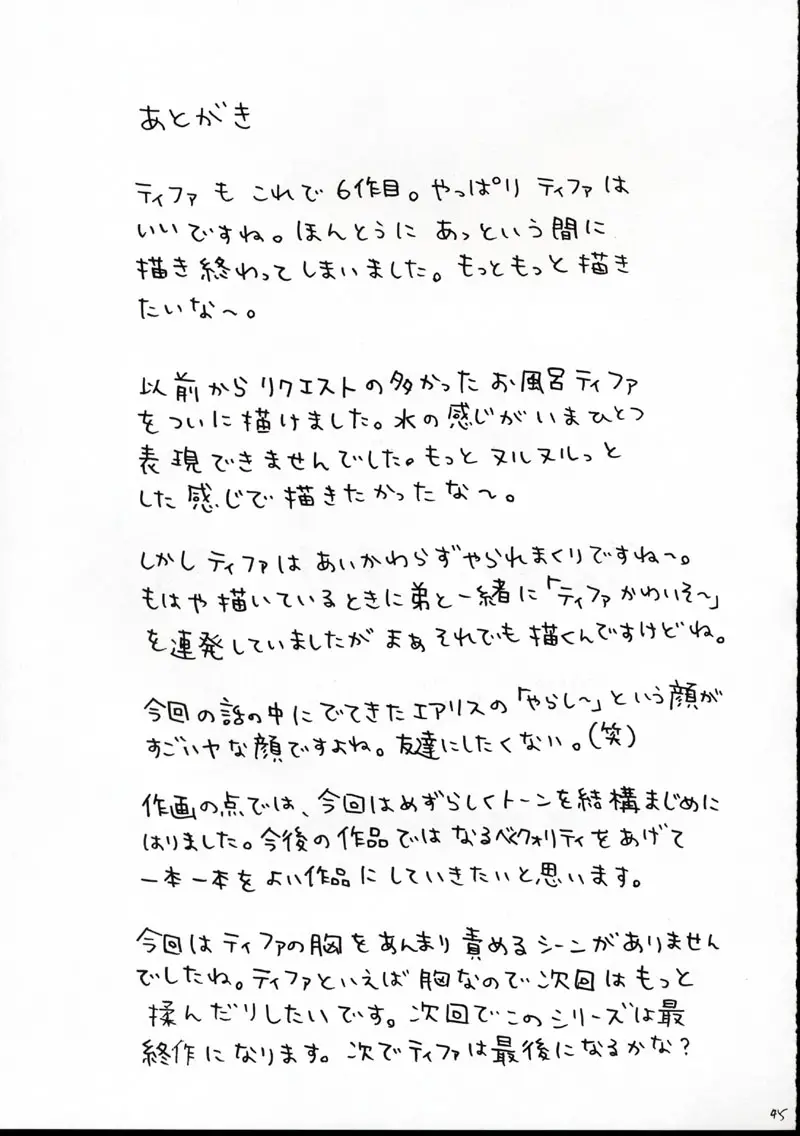 あとがき
ティファも これで 6作目。やっぱり ティファは
いいですね。ほんとうに あっという間に
描き終わってしまいました。もっともっと描き
たいな〜。
以前から リクエストの多かった お風呂ティファ
をついに描けました。水の感じがいまひとつ
表現できませんでした。もっと ヌルヌルっと
した感じで描きたかったな〜。
しかし ティファは あいかわらずやられまくりですね〜。
もはや描いているときに弟と一緒に「ティファかわいそ〜」
を連発していましたが まぁそれでも描くんですけどね。
今回の話の中にでてきたエアリスの「やらし〜」という顔が
すごいヤな顔ですよね。友達にしたくない。(笑)
作画の点では、今回はめずらしくトーンを結構まじめに
はりました。今後の作品では なるべくクォリティをあげて
一本一本をよい作品にしていきたいと思います。
今回はティファの胸をあんまり責めるシーンがありません
でしたね。ティファといえば胸なので次回はもっと
揉んだりしたいです。次回でこのシリーズは最
終作になります。次でティファは最後になるかな?
45